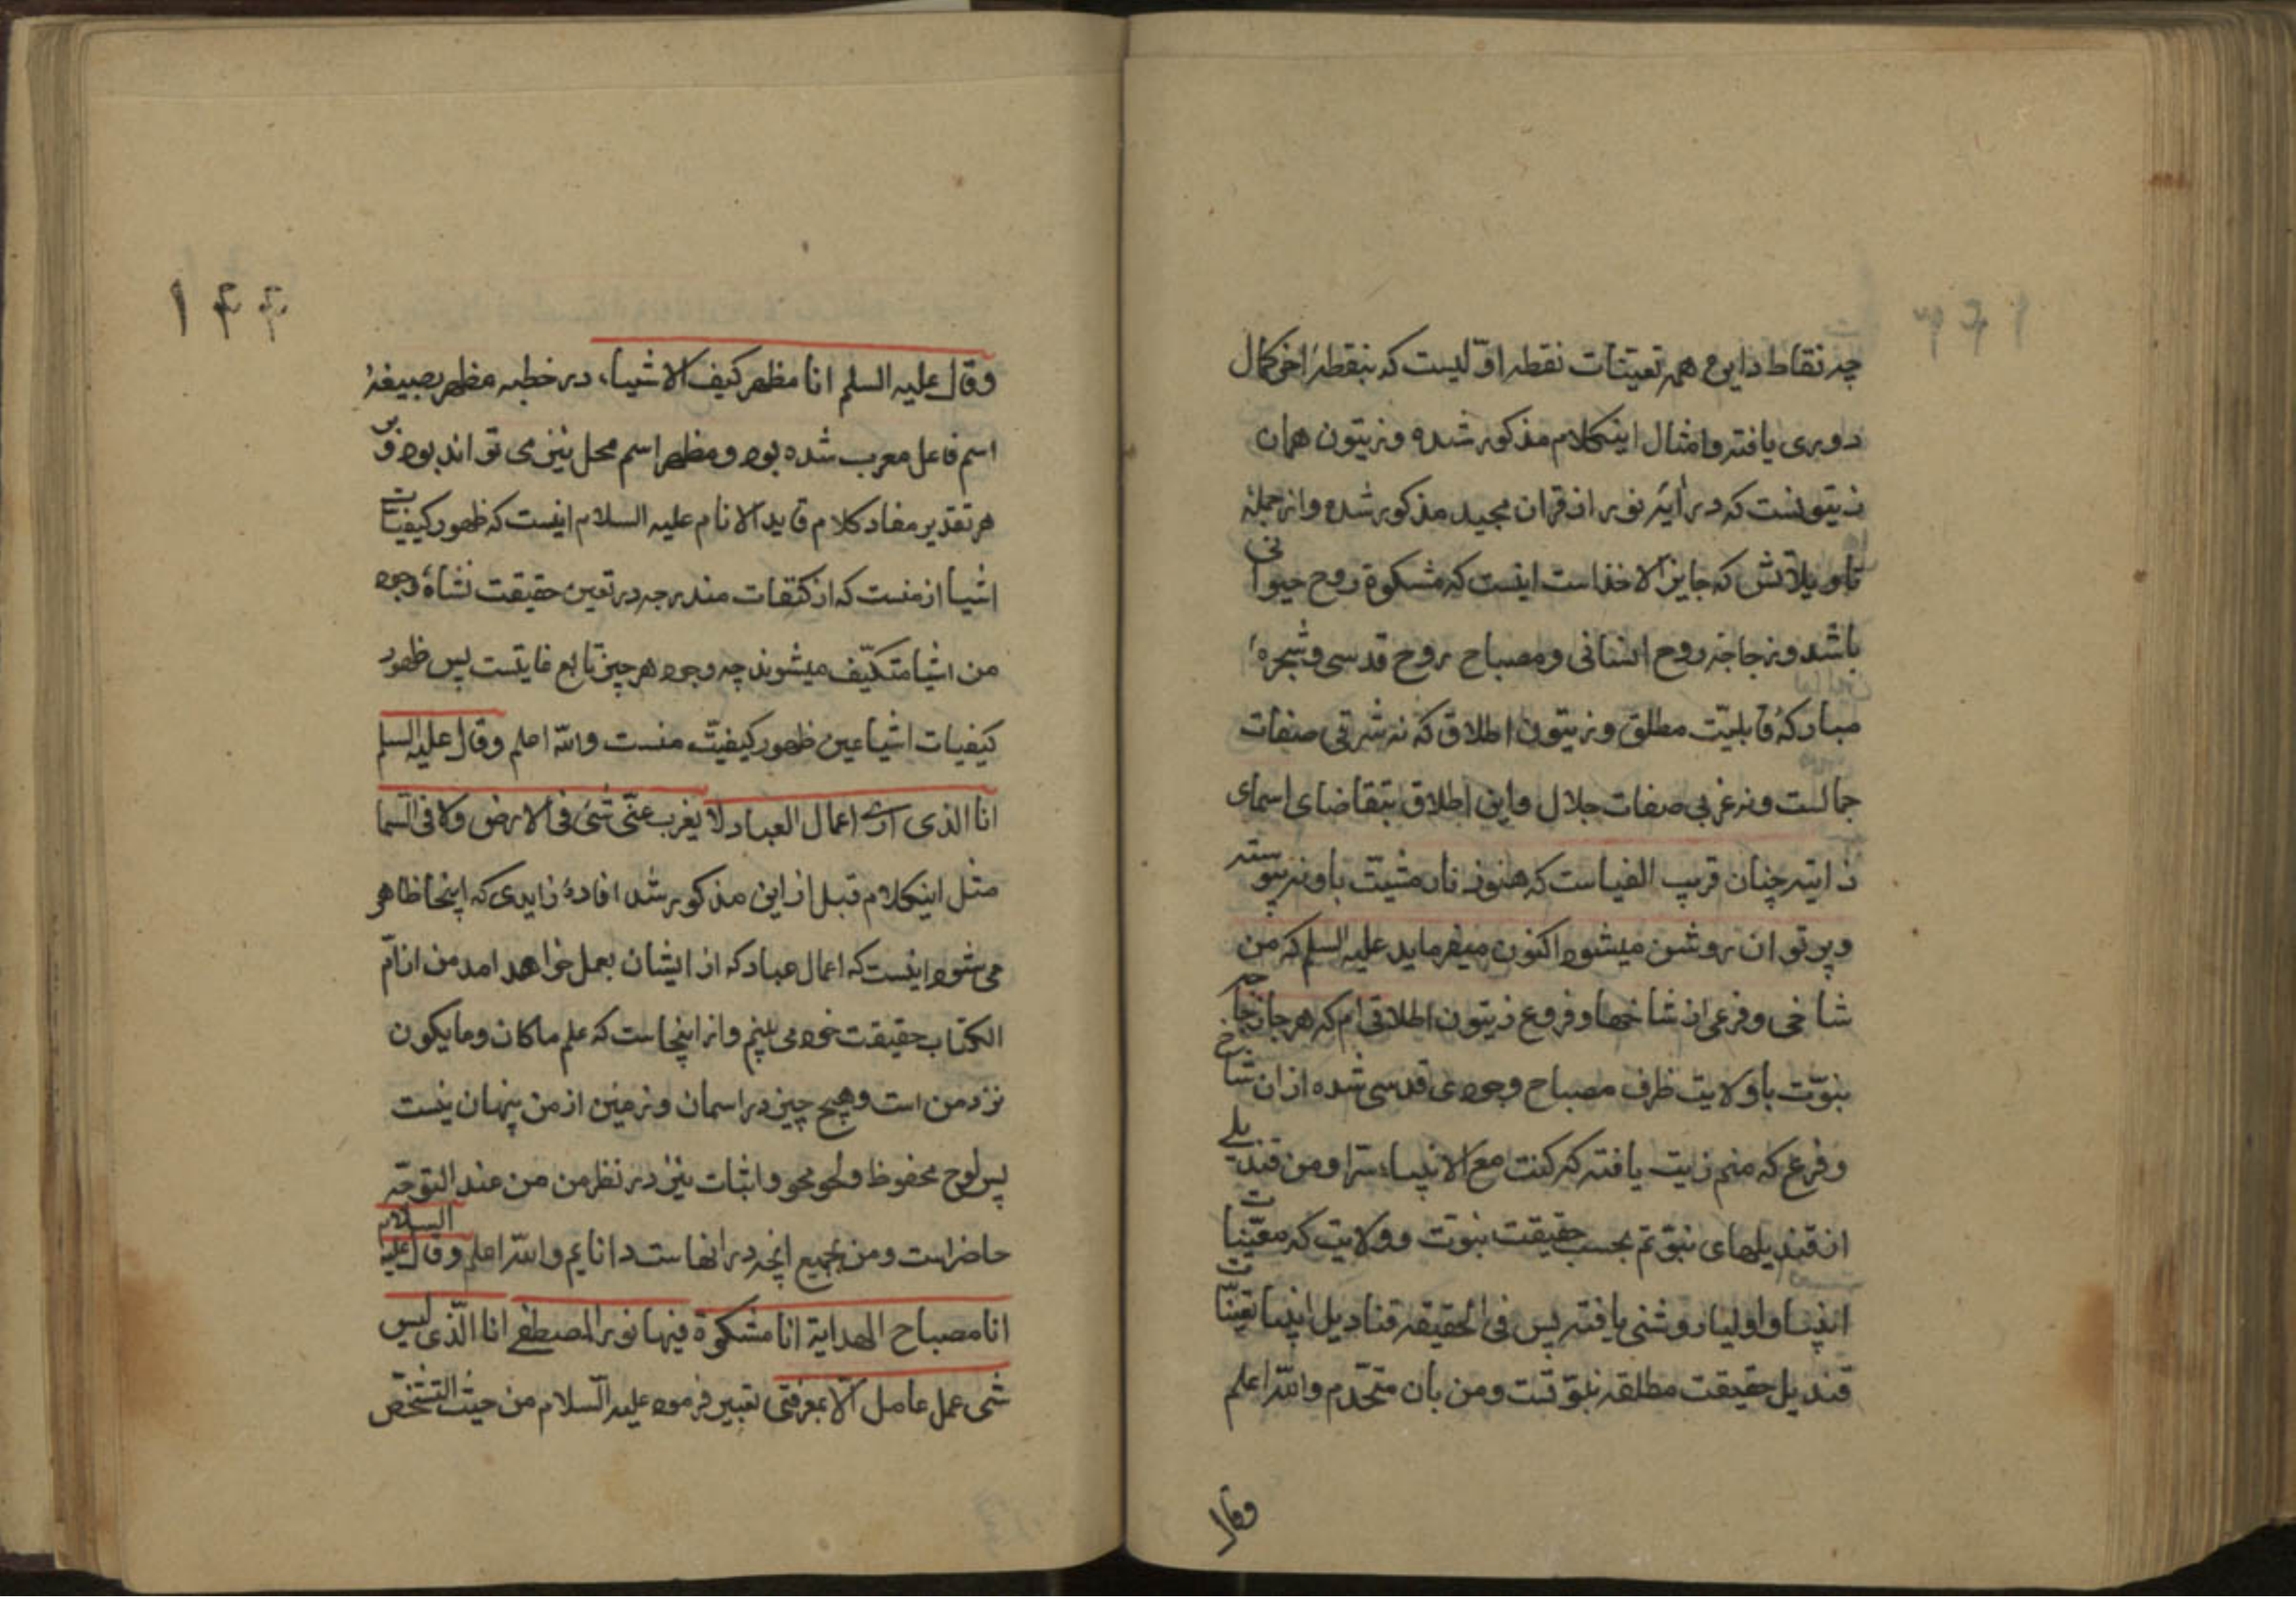 چه نقاط دایره همه تعینات نقطه اولیست که بنقطهٔ اخر کمال
دوری یافته و امثال اینکلام مذکور شده و زیتون همان
زیتونست که در آیهٔ نور از قران مجید مذکور شده و از جملهٔ
تاویلاتش که جایز الاخذ است اینست که مشکوة روح حیوانی
باشد و زجاجه روح انسانی و مصباح روح قدسی و شجرهٔ
مبارکهٔ قابلیّت مطلق و زیتون اطلاق که نه شرقی صفات
جمالست و نه غربی صفات جلال و این اطلاق بتقاضای اسمای
ذاتیه چنان قریب الفیاست که هنوز نار مشیّت باو نپیوسته
و پرتو ان روشن میشود اکنون میفرماید علیه السلم که من
شاخی و فرعی از شاخها و فروع زیتون اطلاقی ام که هر جا زجاجه
نبوّت با ولایت ظرف مصباح وجودی قدسی شده از ان شاخ
و فرع که منم زیت یافته که کنت مع الانبیاء سرّا و من قندیلی
از قندیلهای نبوّتم بحسب حقیقت نبوت و ولایت که
انبیا و اولیا روشنی یافته پس فی الحقیقه قنادیل انبیا تعیّنات
قندیل حقیقت مطلقه نبوّتست و من بان متحّدم و الله اعلم
وقال
۱۴۴
وقال علیه السلم انا مظهر کیف الاشیاء در خطبه مظهر بصیغهٔ
اسم فاعل معرب شده بود و مظهر اسم محل نیز می تواند بود و بر
هر تقدیر مفاد کلام قاید الانام علیه السلام اینست که ظهور کیفیّات
اشیا از منست که از کیفیات مندرجه در تعین حقیقت نشاهٔ وجود
من اشیا متکیّف میشوند چه وجود هر چیز تابع غایتست پس ظهور
کیفیات اشیا عین ظهور کیفیّت منست والله اعلم وقال علیه السلم
انا الذی اری اعمال العباد لا یغرب عنّی شئ فی الارض ولا فی السّما
مثل اینکلام قبل از این مذکور شد افادهٔ زایدی که اینجا ظاهر
می شود اینست که اعمال عباد که از ایشان بعمل خواهد امد من از امّ
الکتاب حقیقت خود می بینم و از اینجاست که علم ماکان و مایکون
نزد من است و هیچ چیز در اسمان و زمین از من پنهان نیست
پس لوح محفوظ و لوح محو و اثبات نیز در نظر من من عند التوجّه
حاضر است و من بجمیع انچه در انهاست دانایم والله اعلم وقال علیه السلام
انا مصباح الهدایة انا مشکوة فیها نور المصطفی انا الّذی لیس
شی عمل عامل الّا بمعرفتی تعبیر فرموده علیه السّلام من حیث التشخّص